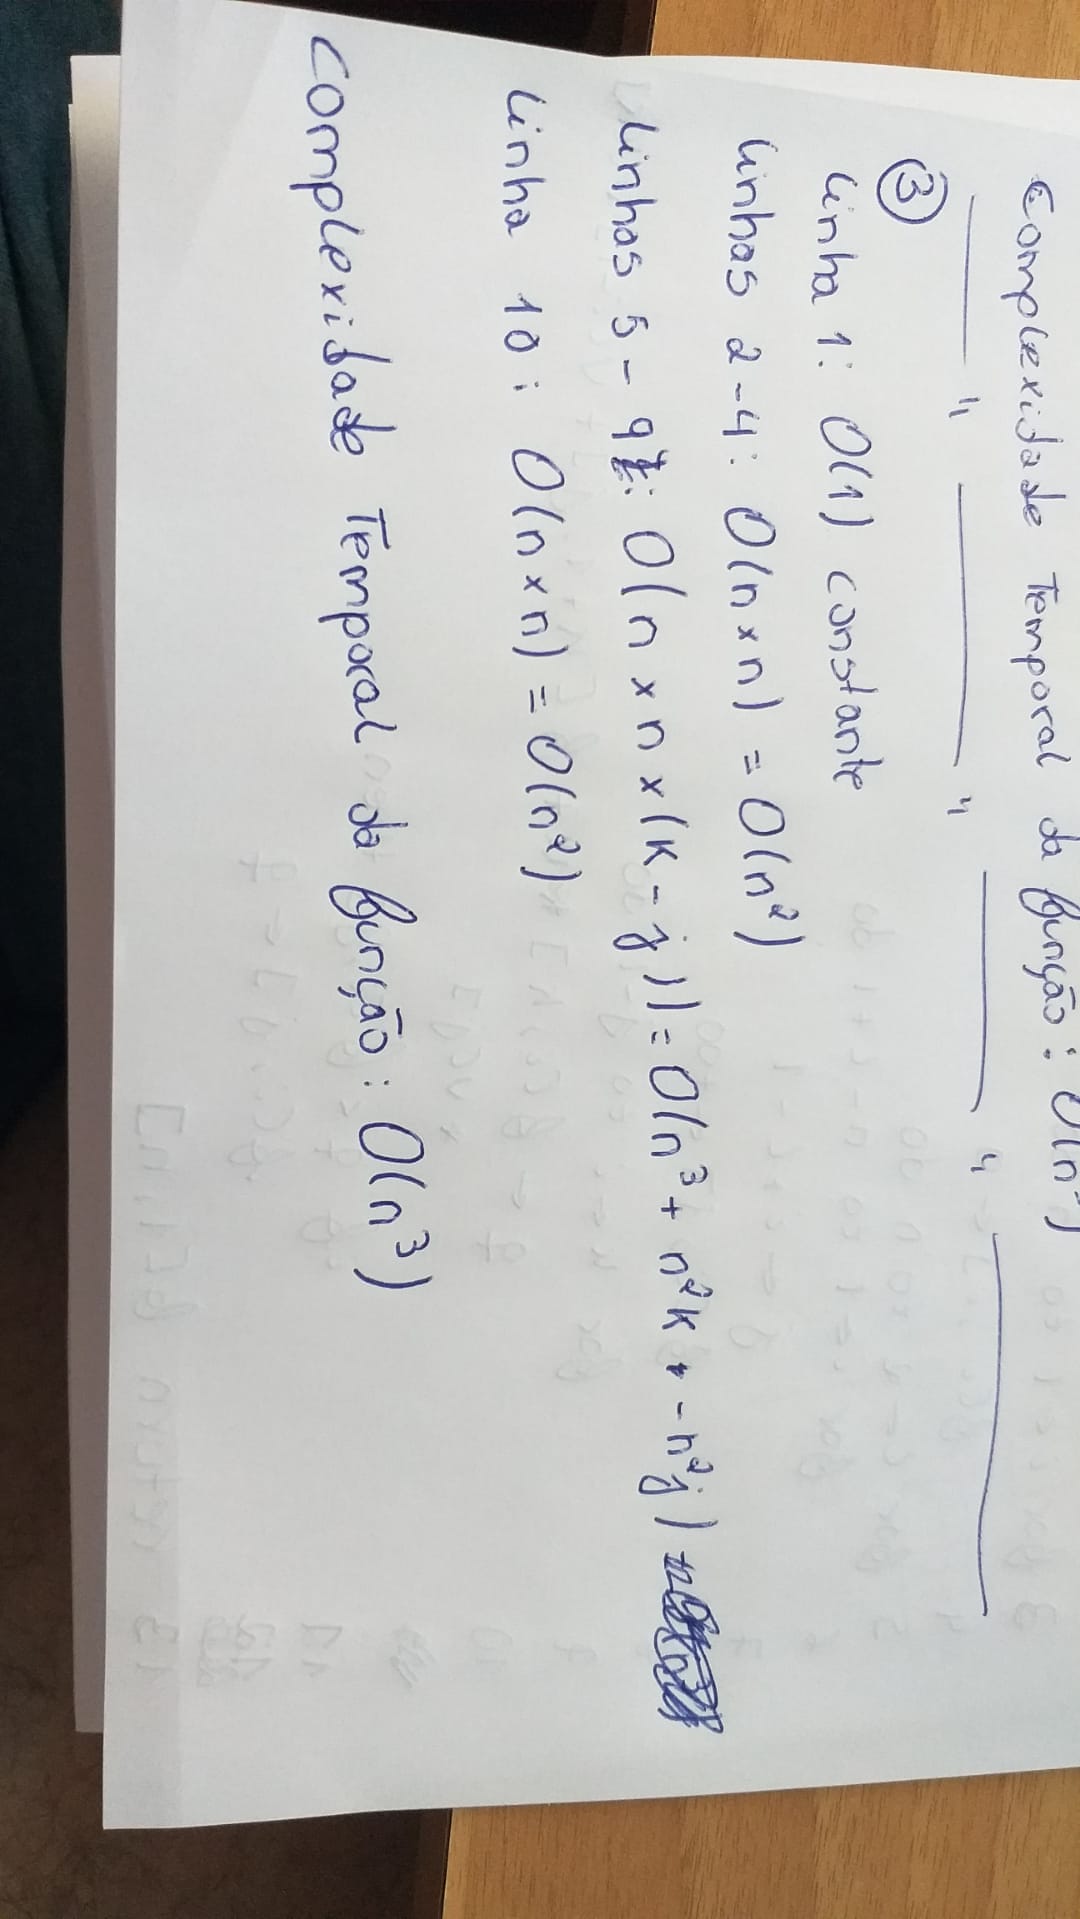 Complexidade Temporal da função: O(n
③
Linha 1: O(1) constante
Linhas 2-4: O(n x n) = O(n²)
Linhas 5-9: O(n x n x (k-j)) = O(n³ + n²k - n²j)
Linha 10: O(n x n) = O(n²)
Complexidade Temporal da função: O(n³)